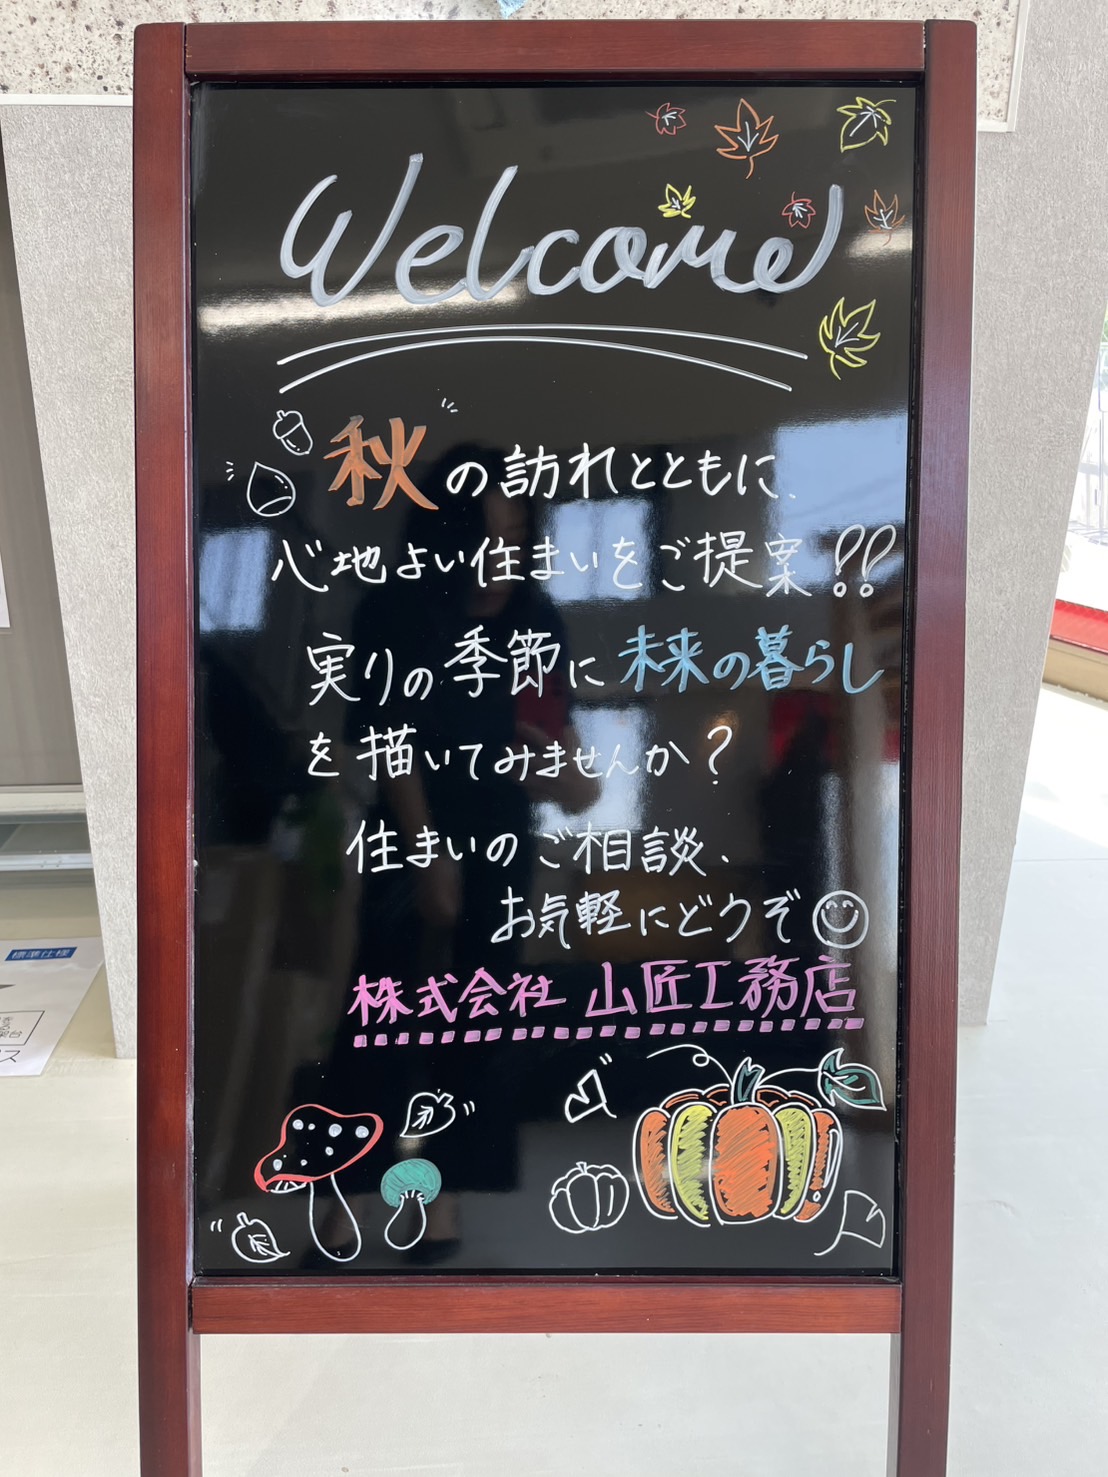 Welcome
秋の訪れとともに、
心地よい住まいをご提案!!
実りの季節に未来の暮らし
を描いてみませんか?
住まいのご相談、
お気軽にどうぞ
株式会社 山匠工務店
標準仕様